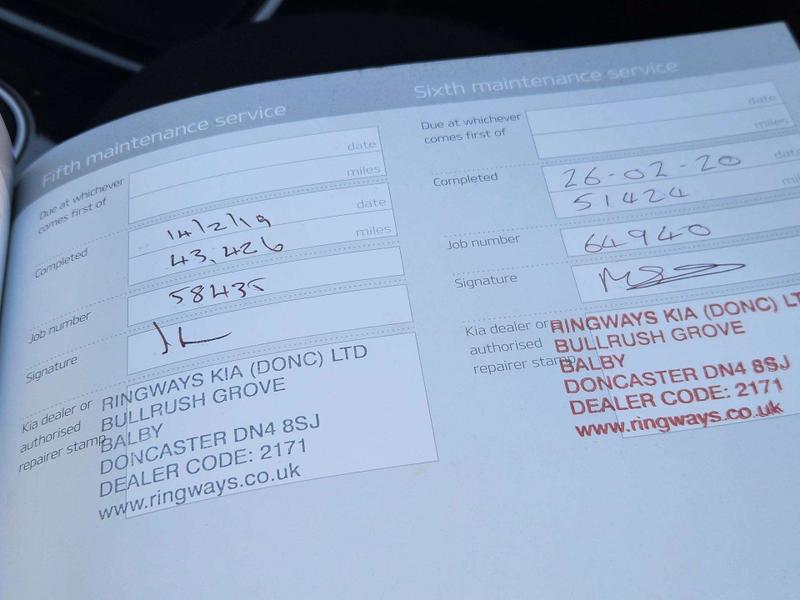 Fifth maintenance service
Due at whichever comes first of
date
miles
Completed
14/2/19
date
43,426
miles
Job number
58435
Signature
Kia dealer or
authorised
repairer stamp
RINGWAYS KIA (DONC) LTD
BULLRUSH GROVE
BALBY
DONCASTER DN4 8SJ
DEALER CODE: 2171
www.ringways.co.uk
Sixth maintenance service
Due at whichever
comes first of
date
miles
Completed
26-02-20
date
51424
Job number
64940
Signature
Kia dealer or
authorised
repairer stamp
RINGWAYS KIA (DONC) LT
BULLRUSH GROVE
BALBY
DONCASTER DN4 8SJ
DEALER CODE: 2171
www.ringways.co.uk